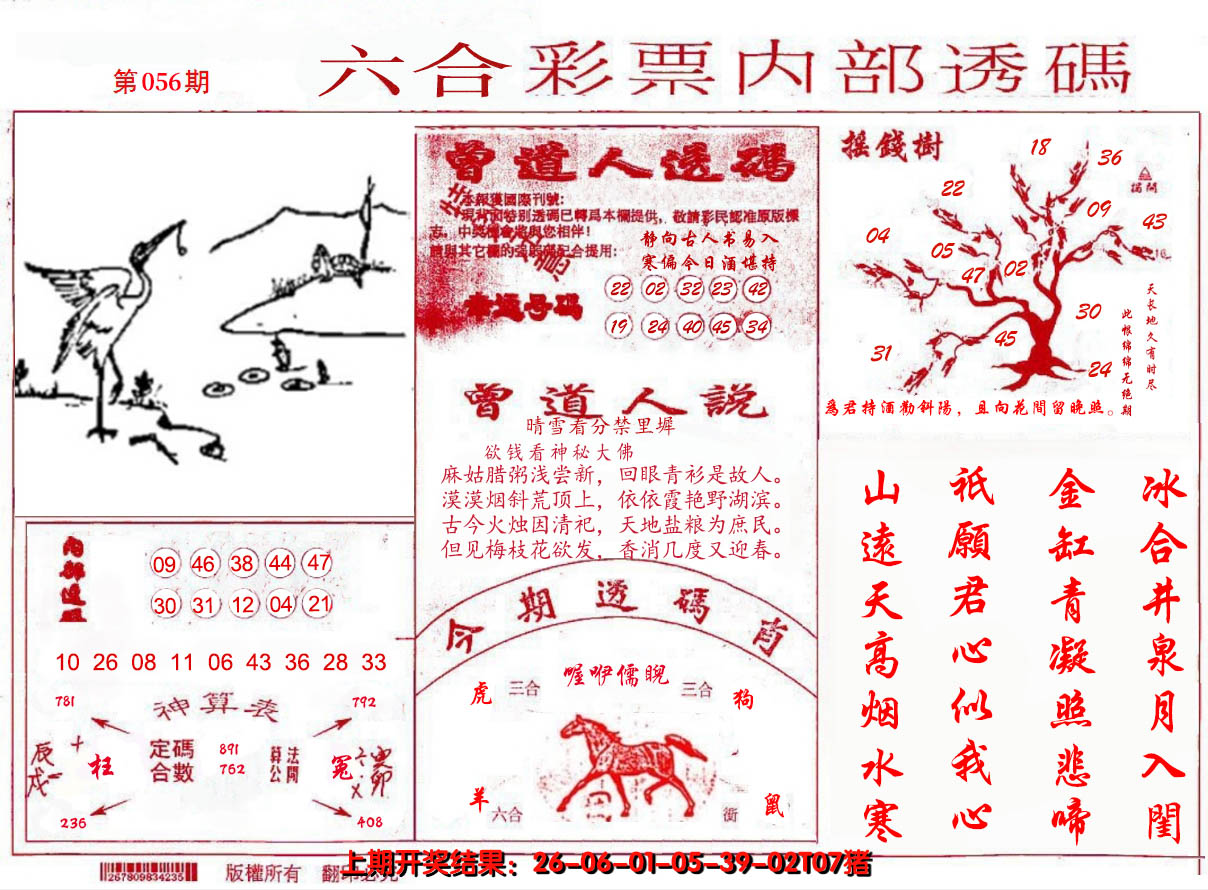 第056期
六合彩票内部透碼
曾道人透碼
本報獲國際刊號:
敬請彩民認准原版標
中獎機會將與您相伴！
静向古人书易入
寒偏今日酒堪持
幸运号码
22 02 32 23 42
19 24 40 45 34
曾道人説
晴雪看分禁里墀
欲钱看神秘大佛
麻姑腊粥浅尝新，回眼青衫是故人。
漠漠烟斜荒顶上，依依霞艳野湖滨。
古今火烛因清祀，天地盐粮为庶民。
但见梅枝花欲发，香消几度又迎春。
今期透碼肖
喔咿儒睨
虎 三合 三合 狗
羊 六合 衝 鼠
摇錢樹
18
36
22
09
43
04
05
47
02
30
45
31
24
天长地久有时尽
此恨绵绵无绝期
爲君持酒勸斜陽，且向花間留晚照。
冰合井泉月入閨
金缸青凝照悲啼
祇願君心似我心
山遠天高烟水寒
09 46 38 44 47
30 31 12 04 21
10 26 08 11 06 43 36 28 33
神算
781
792
定碼
合數
891
762
算公
法開
枉
冤
236
408
267809834235
版權所有
上期开奖结果：26-06-01-05-39-02T07猪